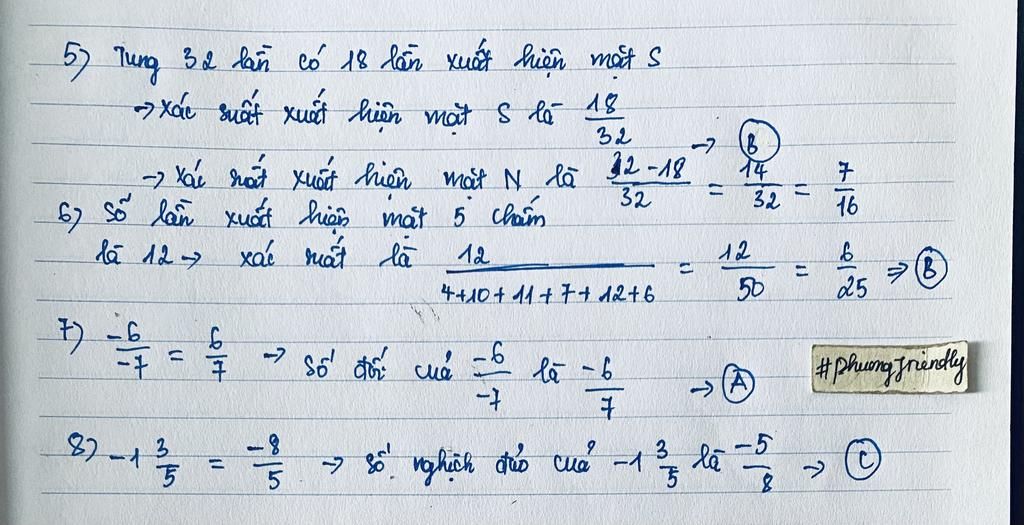 5) Tung 32 lần có 18 lần xuất hiện mặt S
→ xác suất xuất hiện mặt S là 18/32
→ xác suất xuất hiện mặt N là 32-18/32 = 14/32 = 7/16 → B
6) Số lần xuất hiện mặt 5 chấm
là 12 → xác suất là 12/4+10+11+7+12+6 = 12/50 = 6/25 ⇒ B
7) -6/-7 = 6/7 → số đối của -6/-7 là -6/7 → A
#phuongfriendly
8) -1 3/5 = -8/5 → số nghịch đảo của -1 3/5 là -5/8 → C